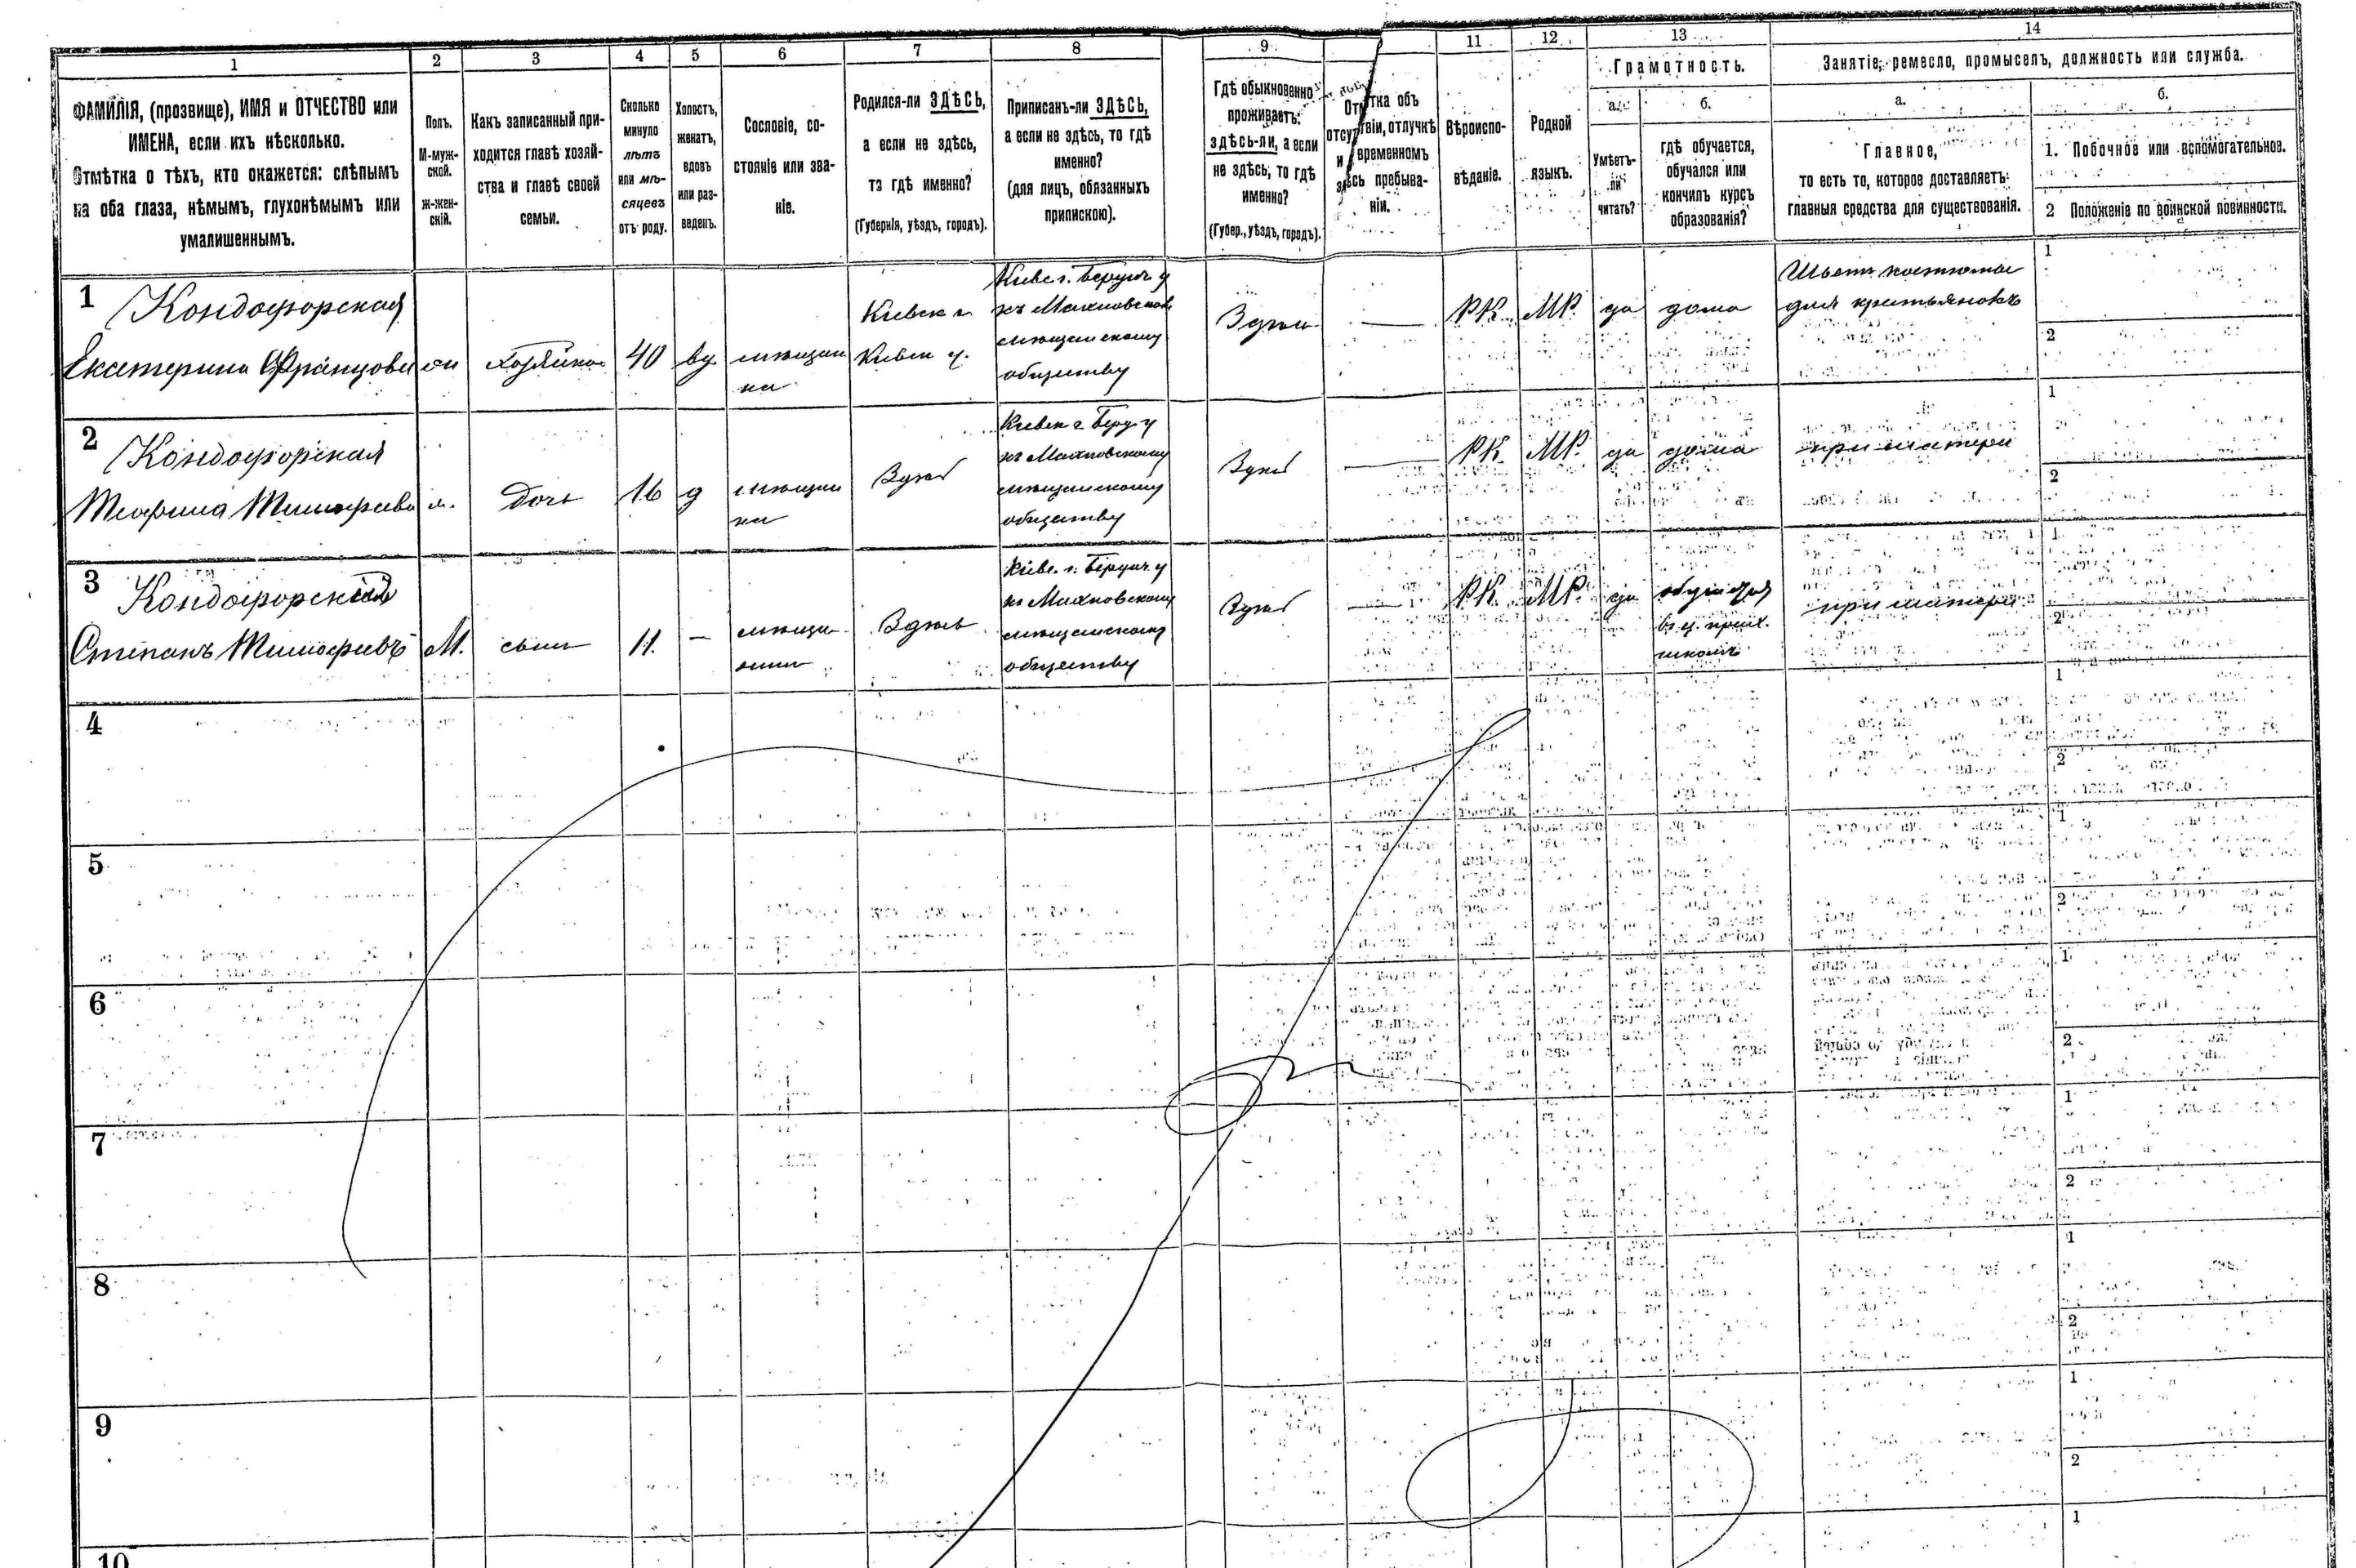 1
2
3
4
5
6
7
8
9
11
12
13
14
ФАМИЛІЯ, (прозвище), ИМЯ и ОТЧЕСТВО или
ИМЕНА, если ихъ нѣсколько.
Отмѣтка о тѣхъ, кто окажется: слѣпымъ
на оба глаза, нѣмымъ, глухонѣмымъ или
умалишеннымъ.
Полъ.
М-муж-
ской.
ж-жен-
скій.
Какъ записанный при-
ходится главѣ хозяй-
ства и главѣ своей
семьи.
Сколько
минуло
лѣтъ
или мѣ-
сяцевъ
отъ роду.
Холостъ,
женатъ,
вдовъ
или раз-
веденъ.
Сословіе, со-
стояніе или зва-
ніе.
Родился-ли ЗДѢСЬ,
а если не здѣсь,
то гдѣ именно?
(Губернія, уѣздъ, городъ).
Приписанъ-ли ЗДѢСЬ,
а если не здѣсь, то гдѣ
именно?
(для лицъ, обязанныхъ
припискою).
Гдѣ обыкновенно
проживаетъ:
ЗДѢСЬ-ЛИ, а если
не здѣсь, то гдѣ
именно?
(Губер., уѣздъ, городъ).
Отмѣтка объ
отсутствіи, отлучкѣ
и временномъ
здѣсь пребыва-
ніи.
Вѣроиспо-
вѣданіе.
Родной
языкъ.
Грамотность.
а.
Умѣетъ-
ли
читать?
б.
гдѣ обучается,
обучался или
кончилъ курсъ
образованія?
Занятіе, ремесло, промыселъ, должность или служба.
а.
Главное,
то есть то, которое доставляетъ
главныя средства для существованія.
б.
1. Побочное или вспомогательное.
2 Положеніе по воинской повинности.
1
Кондофорская
Екатерина Францова
хозяйка
40
вд
мѣщан
ка
Кіевск г.
Кіевск у.
Кіевс г. Бердич у
къ Махновскому
мѣщанскому
обществу
Здѣсь
—
РК
МР.
да
дома
Шьетъ костюмы
для крестьяновъ
1
2
2
Кондофорская
Тимофеева
дочь
16
д
мѣщан
ка
Здѣсь
Кіевск г. Берд у
къ Махновскому
мѣщанскому
обществу
Здѣсь
—
РК
МР.
да
дома
при матери
1
2
3
Кондофорскій
Степанъ Тимофеевъ
М.
сынъ
11.
—
мѣща-
нин
Здѣсь
Кіевс. г. Бердич. у
къ Махновскому
мѣщанскому
обществу
Здѣсь
—
РК
МР.
да
обучался
въ ц. прих.
школѣ
при матери
1
2
4
1
2
5
1
2
6
1
2
7
1
2
8
1
2
9
1
2
10
1